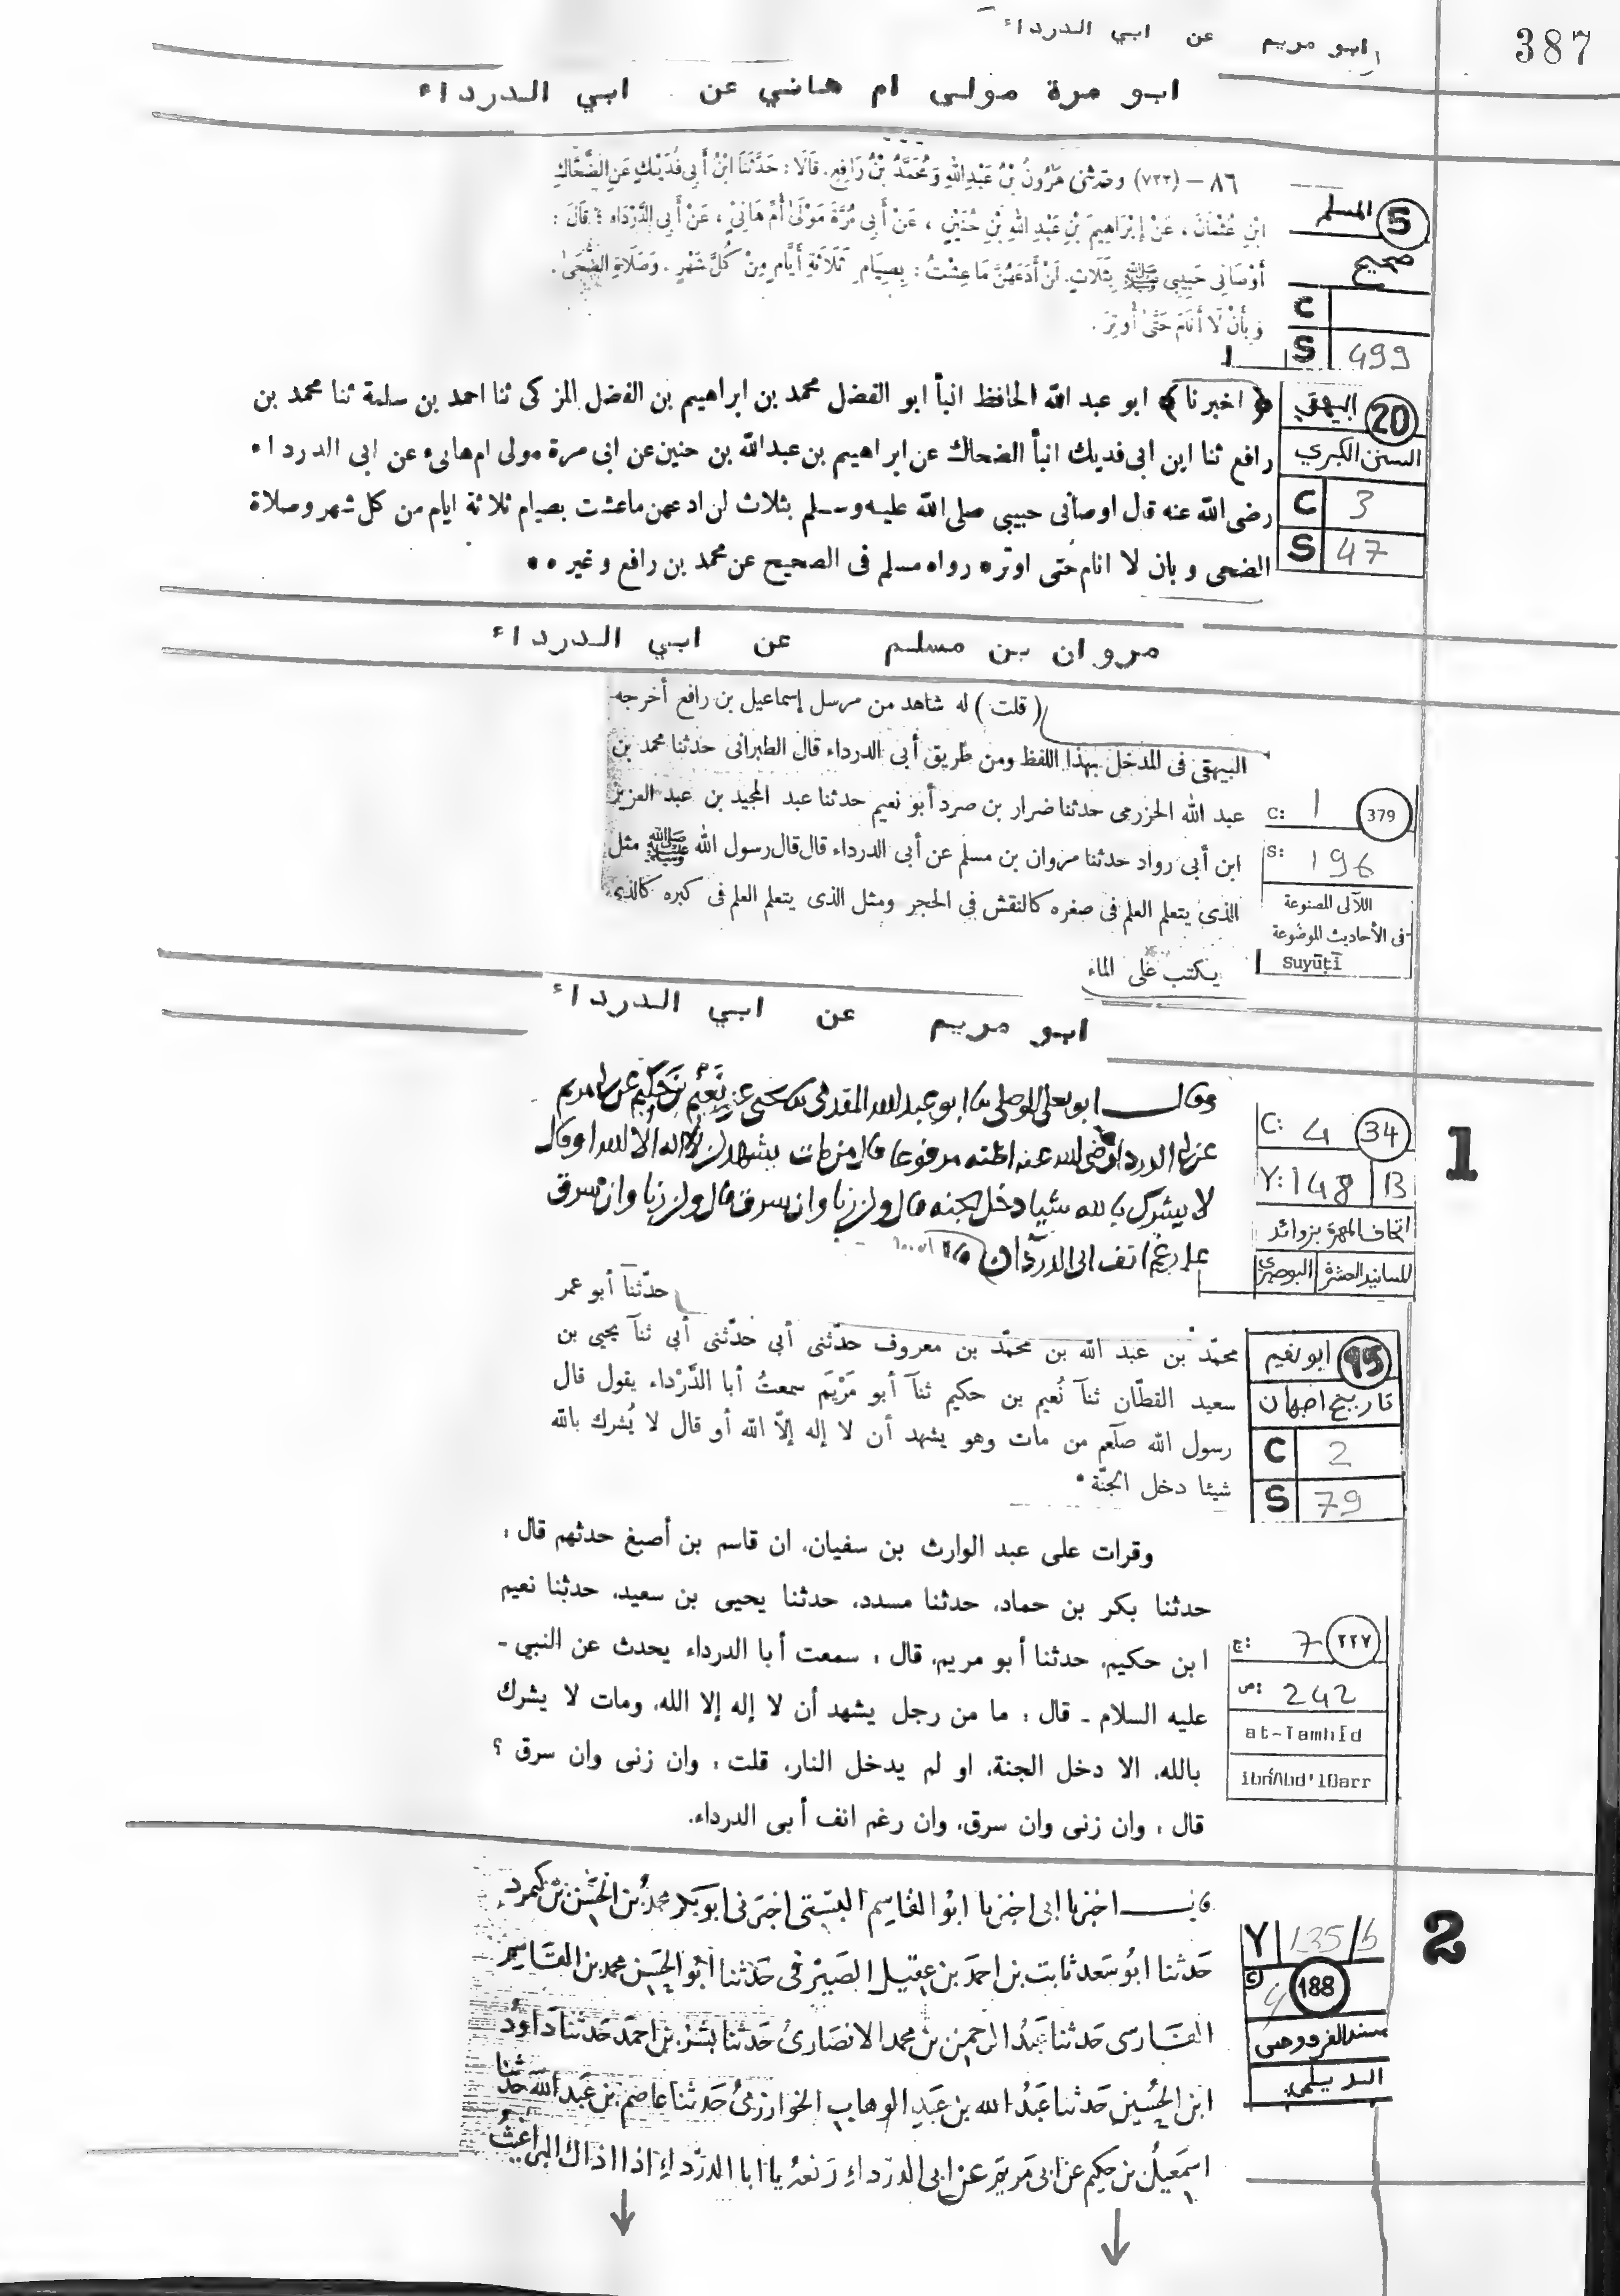 387
ابو مريم عن ابي الدرداء
ابو مرة مولى ام هاني عن ابي الدرداء
٨٦ – (٧٢٢) وحدثني هَرُونُ بْنُ عَبْدِ اللهِ وَمُحَمَّدُ بْنُ رَافِعٍ. قَالَا : حَدَّثَنَا ابْنُ أَبِي فُدَيْكٍ عَنِ الضَّحَّاكِ
ابْنِ عُثْمَانَ ، عَنْ إِبْرَاهِيمَ بْنِ عَبْدِ اللهِ بْنِ حُنَيْنٍ ، عَنْ أَبِي مُرَّةَ مَوْلَىٰ أُمِّ هَانِئٍ ، عَنْ أَبِي الدَّرْدَاءِ ؛ قَالَ :
أَوْصَانِي حَبِيبِي ﷺ بِثَلَاثٍ. لَنْ أَدَعَهُنَّ مَا عِشْتُ : بِصِيَامِ ثَلَاثَةِ أَيَّامٍ مِنْ كُلِّ شَهْرٍ . وَصَلَاةِ الضُّحَىٰ.
وَبِأَنْ لَا أَنَامَ حَتَّىٰ أُوتِرَ .
5 المسلم
صحيح
C
S 499
1
﴿ اخبرنا ﴾ ابو عبد الله الحافظ انبأ ابو الفضل محمد بن ابراهيم بن الفضل المزكى ثنا احمد بن سلمة ثنا محمد بن
رافع ثنا ابن ابى فديك انبأ الضحاك عن ابراهيم بن عبدالله بن حنين عن ابى مرة مولى ام هانىء عن ابى الدرداء
رضى الله عنه قال اوصانى حبيبى صلى الله عليه وسلم بثلاث لن ادعهن ما عشت بصيام ثلاثة ايام من كل شهر وصلاة
الضحى وبان لا انام حتى اوتر ه رواه مسلم فى الصحيح عن محمد بن رافع وغيره ٠
20 البيهقي
السنن الكبري
C 3
S 47
مروان بن مسلم عن ابي الدرداء
( قلت ) له شاهد من مرسل إسماعيل بن رافع أخرجه
البيهقى فى المدخل بهذا اللفظ ومن طريق أبى الدرداء قال الطبرانى حدثنا محمد بن
عبد الله الحزرمى حدثنا ضرار بن صرد أبو نعيم حدثنا عبد المجيد بن عبد العزيز
ابن أبى رواد حدثنا مروان بن مسلم عن أبى الدرداء قال قال رسول الله ﷺ مثل
الذى يتعلم العلم فى صغره كالنقش فى الحجر ومثل الذى يتعلم العلم فى كبره كالذى
يكتب على الماء
C: 1 379
S: 196
اللآلى المصنوعة
فى الأحاديث الموضوعة
Suyūṭī
ابو مريم عن ابي الدرداء
وقال ابو يعلى الموصلي ثنا ابو عبد الله المقدمي ثنا يحيى عن نُعَيْم بن حَكِيم عن ابي مريم
عن ابي الدرداء رضي الله عنه اظنه مرفوعا قال من مات يشهد ان لا اله الا الله او قال
لا يشرك بالله شيا دخل الجنه قال وان زنا وان سرق قال وان زنا وان سرق
على رغم انف ابي الدرداء
C: 4 34
Y: 148 B
اتحاف المهرة بزوائد
المسانيد العشرة البوصيري
1
حدّثنا أبو عمر
محمّد بن عبد الله بن محمّد بن معروف حدّثنى أبى حدّثنى أبى ثنآ يحيى بن
سعيد القطّان ثنآ نُعيم بن حكيم ثنآ أبو مَرْيَمَ سمعتُ أبا الدَّرْداء يقول قال
رسول الله صلّعم من مات وهو يشهد أن لا إله إلاّ الله أو قال لا يُشرك بالله
شيئا دخل الجنّة •
95 ابو نعيم
تاريخ اصبهان
C 2
S 79
وقرات على عبد الوارث بن سفيان، ان قاسم بن أصبغ حدثهم قال :
حدثنا بكر بن حماد، حدثنا مسدد، حدثنا يحيى بن سعيد، حدثنا نعيم
ابن حكيم، حدثنا أبو مريم، قال : سمعت أبا الدرداء يحدث عن النبي -
عليه السلام - قال : ما من رجل يشهد أن لا إله إلا الله، ومات لا يشرك
بالله، الا دخل الجنة، او لم يدخل النار، قلت : وان زنى وان سرق ؟
قال : وان زنى وان سرق، وان رغم انف أبى الدرداء.
ج: 7 ٢٢٧
ص: 242
at-Tamhīd
ibn ʿAbd'lBarr
اخبرنا ابى اخبرنا ابُو القاسِم البُستى اخبَرنى ابو بكر محمدُ بن الحسَن بن
حَدثنا ابُو سَعد ثابت بن احمَد بن عقيل الصَيرفى حَدثنا ابُو الحسَن محمد بن القَاسِم
الفَارسى حَدثنا عَبدُ الرحمن بن محمد الانصَارىُ حَدثنا بشر بن احمَد حَدثنا دَاوُد
ابن الحُسَين حَدثنا عَبدُ الله بن عَبدِ الوهاب الخوارزمىُ حَدثنا عاصم بن عَبدِ الله حَدثنا
اسمَعيلُ بن حكيم عن ابى مَريم عن ابى الدرداءِ رَفعهُ يا ابا الدَرداءِ اذا اذاك البراغيثُ
Y 135/b
C 4 188
مسند الفردوس
الديلمي
2